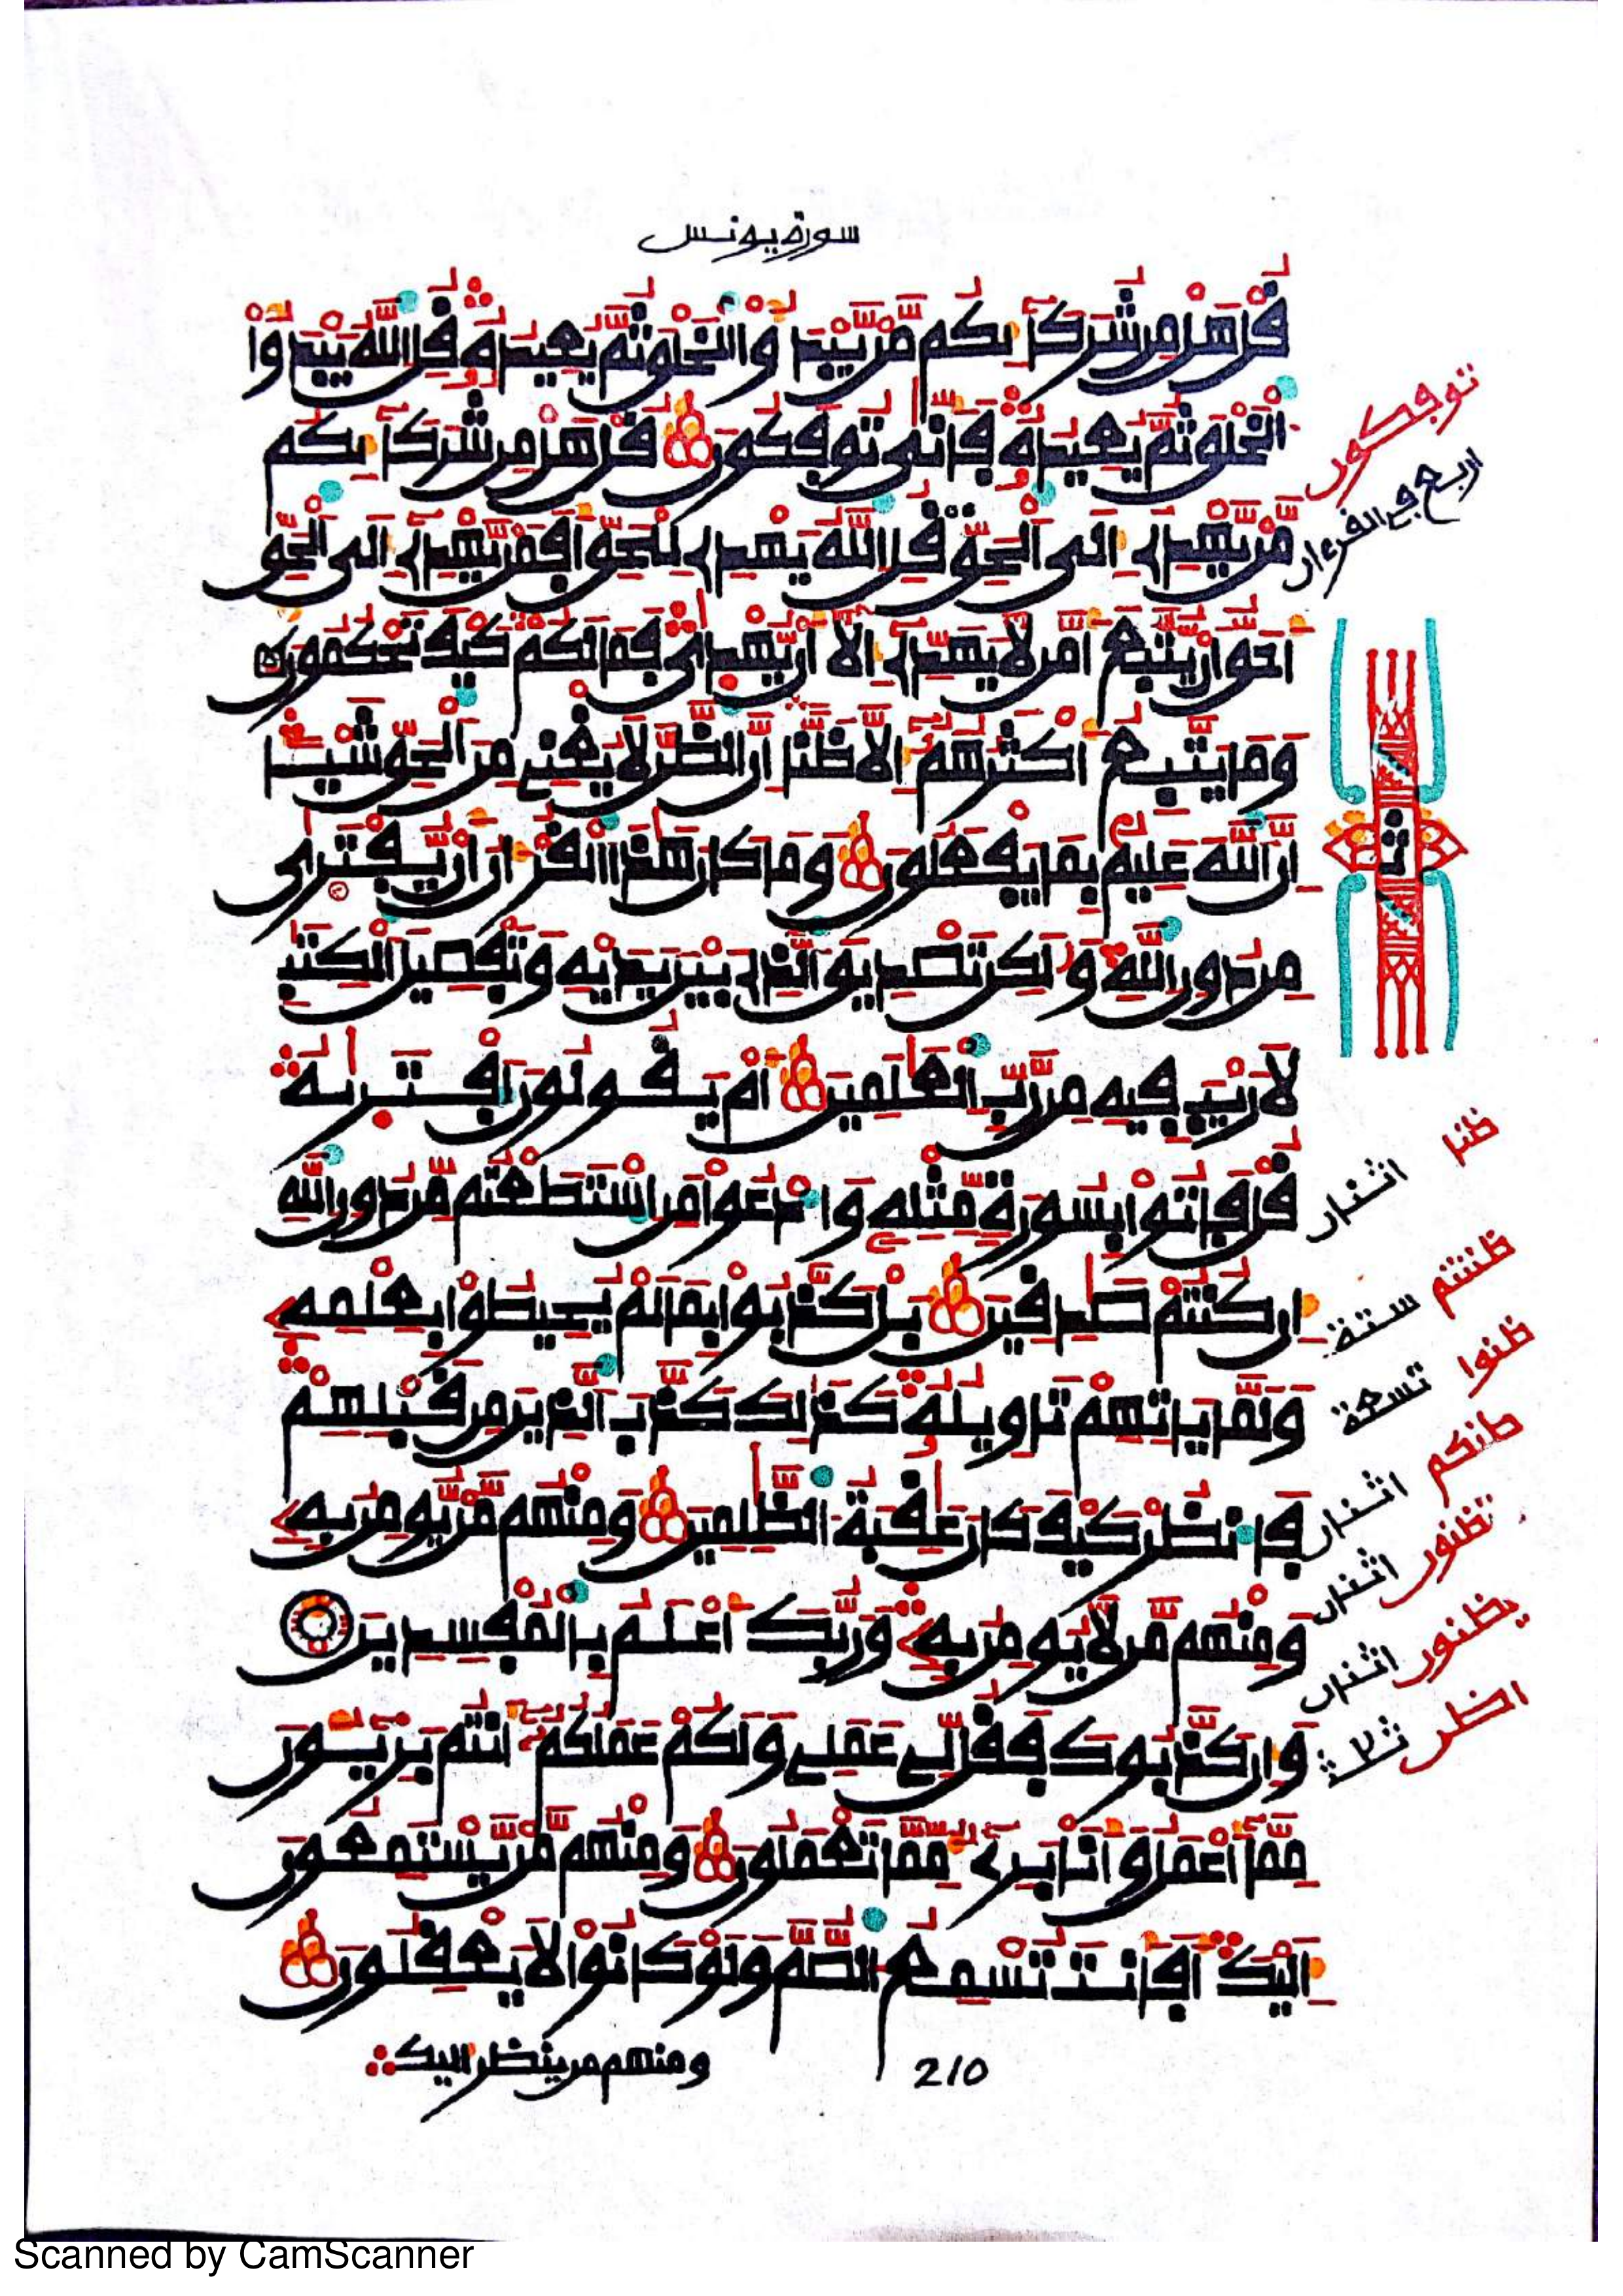 سورة يونس
قل هل من شركائكم من يبدؤا الخلق ثم يعيده قل الله يبدؤا
الخلق ثم يعيده فأنى توفكون قل هل من شركائكم
من يهدى إلى الحق قل الله يهدى للحق أفمن يهدى إلى الحق
أحق أن يتبع أمن لا يهدى إلا أن يهدى فما لكم كيف تحكمون
وما يتبع أكثرهم إلا ظنا إن الظن لا يغنى من الحق شيئا
إن الله عليم بما يفعلون وما كان هذا القرءان أن يفترى
من دون الله ولكن تصديق الذى بين يديه وتفصيل الكتب
لا ريب فيه من رب العلمين أم يقولون افتريه
قل فاتوا بسورة مثله وادعوا من استطعتم من دون الله
إن كنتم صدقين بل كذبوا بما لم يحيطوا بعلمه
ولما ياتهم تاويله كذلك كذب الذين من قبلهم
فانظر كيف كان عقبة الظلمين ومنهم من يومن به
ومنهم من لا يومن به وربك أعلم بالمفسدين
وإن كذبوك فقل لى عملى ولكم عملكم أنتم بريئون
مما أعمل وأنا برىء مما تعملون ومنهم من يستمعون
إليك أفأنت تسمع الصم ولو كانوا لا يعقلون
ومنهم من ينظر اليك
210
توفكون
اربع في القرءان
ثمن
ظنا اثنان
ظننتم ستة
ظنوا تسعة
ظنكم اثنان
تظنون اثنان
يظنون اثنان
الظن ثلاثة
Scanned by CamScanner